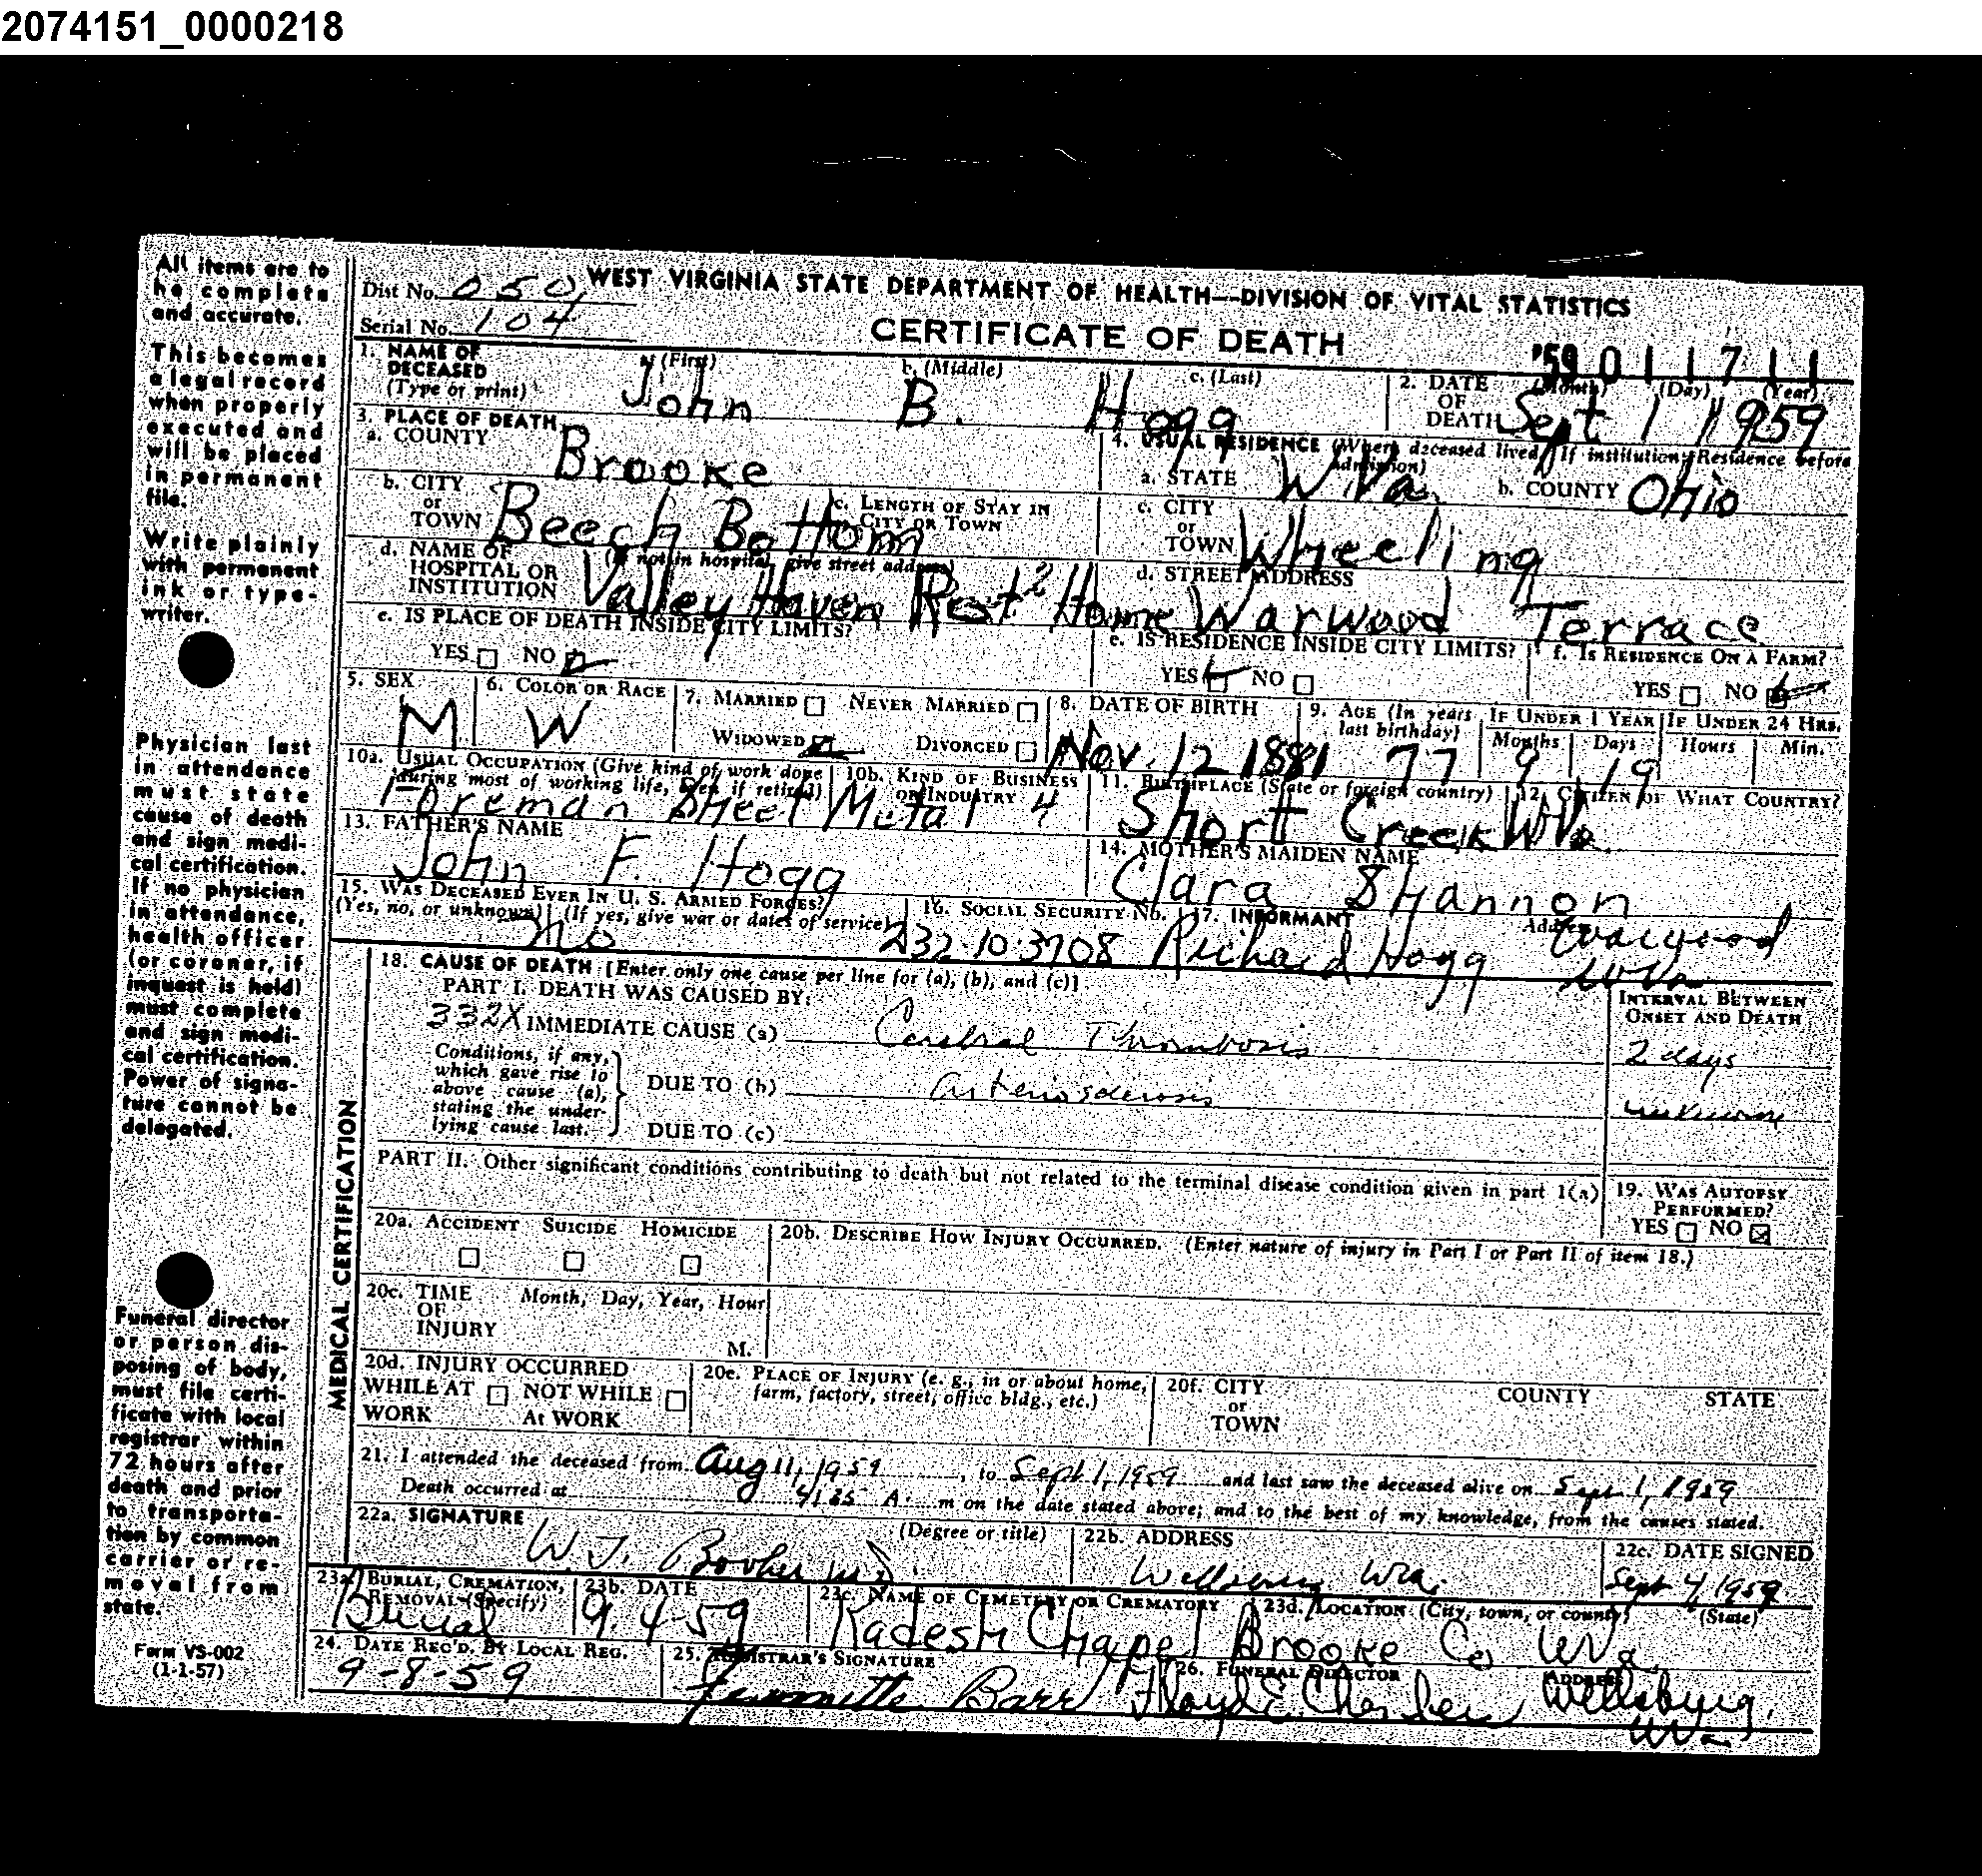 2074151_0000218
All items are to be complete and accurate.
This becomes a legal record when properly executed and will be placed in permanent file.
Write plainly with permanent ink or typewriter.
Physician last in attendance must state cause of death and sign medical certification. If no physician in attendance, health officer (or coroner, if inquest is held) must complete and sign medical certification. Power of signature cannot be delegated.
Funeral director or person disposing of body, must file certificate with local registrar within 72 hours after death and prior to transportation by common carrier or removal from state.
Form VS-002
(1-1-57)
Dist No. 050 WEST VIRGINIA STATE DEPARTMENT OF HEALTH—DIVISION OF VITAL STATISTICS
Serial No. 104 CERTIFICATE OF DEATH
'59 011711
1. NAME OF DECEASED (Type or print) a. (First) John b. (Middle) B. c. (Last) Hogg 2. DATE OF DEATH (Month) (Day) (Year) Sept 1 1959
3. PLACE OF DEATH a. COUNTY Brooke
4. USUAL RESIDENCE (Where deceased lived. If institution: Residence before Admission) a. STATE W.Va. b. COUNTY Ohio
b. CITY or TOWN Beech Bottom c. LENGTH OF STAY IN CITY OR TOWN
c. CITY or TOWN Wheeling
d. NAME OF HOSPITAL OR INSTITUTION (If not in hospital, give street address) Valley Haven Rest Home
d. STREET ADDRESS Warwood Terrace
e. IS PLACE OF DEATH INSIDE CITY LIMITS? YES NO
e. IS RESIDENCE INSIDE CITY LIMITS? YES NO
f. IS RESIDENCE ON A FARM? YES NO
5. SEX M 6. COLOR OR RACE W 7. MARRIED NEVER MARRIED WIDOWED DIVORCED
8. DATE OF BIRTH Nov. 12 1881 9. AGE (In years last birthday) 77 IF UNDER 1 YEAR Months 9 Days 19 IF UNDER 24 HRS. Hours Min.
10a. USUAL OCCUPATION (Give kind of work done during most of working life, even if retired) Foreman Sheet Metal 10b. KIND OF BUSINESS OR INDUSTRY 4
11. BIRTHPLACE (State or foreign country) Short Creek W Va. 12. CITIZEN OF WHAT COUNTRY?
13. FATHER'S NAME John F. Hogg
14. MOTHER'S MAIDEN NAME Clara Shannon
15. WAS DECEASED EVER IN U. S. ARMED FORCES? (Yes, no, or unknown) (If yes, give war or dates of service) no
16. SOCIAL SECURITY No. 232-10-3708 17. INFORMANT Richard Hogg Address Warwood W Va
MEDICAL CERTIFICATION
18. CAUSE OF DEATH [Enter only one cause per line for (a), (b), and (c)]
PART I. DEATH WAS CAUSED BY: INTERVAL BETWEEN ONSET AND DEATH
332X IMMEDIATE CAUSE (a) Cerebral Thrombosis 2 days
Conditions, if any, which gave rise to above cause (a), stating the underlying cause last. DUE TO (b) Arteriosclerosis unknown
DUE TO (c)
PART II. Other significant conditions contributing to death but not related to the terminal disease condition given in part 1(a)
19. WAS AUTOPSY PERFORMED? YES NO
20a. ACCIDENT SUICIDE HOMICIDE 20b. DESCRIBE HOW INJURY OCCURRED. (Enter nature of injury in Part I or Part II of item 18.)
20c. TIME OF INJURY Month, Day, Year, Hour M.
20d. INJURY OCCURRED WHILE AT WORK NOT WHILE At WORK
20e. PLACE OF INJURY (e. g., in or about home, farm, factory, street, office bldg., etc.)
20f. CITY or TOWN COUNTY STATE
21. I attended the deceased from Aug 11, 1959, to Sept 1, 1959 and last saw the deceased alive on Sept 1, 1959
Death occurred at A. m on the date stated above; and to the best of my knowledge, from the causes stated.
22a. SIGNATURE W.J. Booher M.D. (Degree or title) 22b. ADDRESS Wellsburg W.Va. 22c. DATE SIGNED Sept 4, 1959
23a. BURIAL, CREMATION, REMOVAL (Specify) Burial 23b. DATE 9-4-59 23c. NAME OF CEMETERY OR CREMATORY Kadesh Chapel 23d. LOCATION (City, town, or county) (State) Brooke Co W Va.
24. DATE REC'D. BY LOCAL REG. 9-8-59 25. REGISTRAR'S SIGNATURE Jeannette Barr 26. FUNERAL DIRECTOR Floyd E. ADDRESS Wellsburg, W Va